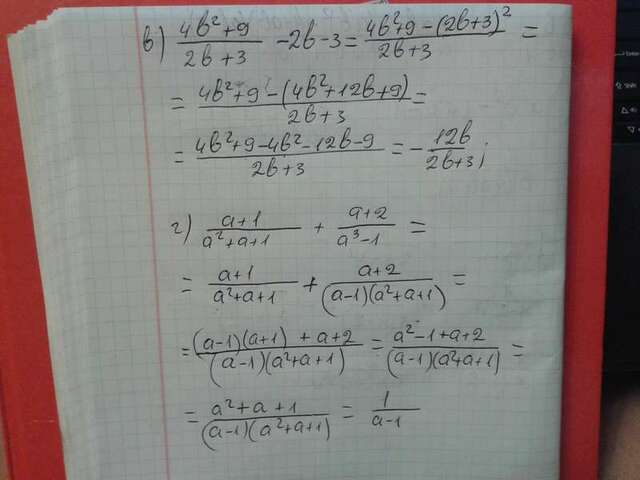 в) (4b²+9)/(2b+3) -2b-3 = (4b²+9-(2b+3)²)/(2b+3) =
= (4b²+9-(4b²+12b+9))/(2b+3) =
= (4b²+9-4b²-12b-9)/(2b+3) = -12b/(2b+3);
г) (a+1)/(a²+a+1) + (a+2)/(a³-1) =
= (a+1)/(a²+a+1) + (a+2)/((a-1)(a²+a+1)) =
= ((a-1)(a+1)+a+2)/((a-1)(a²+a+1)) = (a²-1+a+2)/((a-1)(a²+a+1)) =
= (a²+a+1)/((a-1)(a²+a+1)) = 1/(a-1)